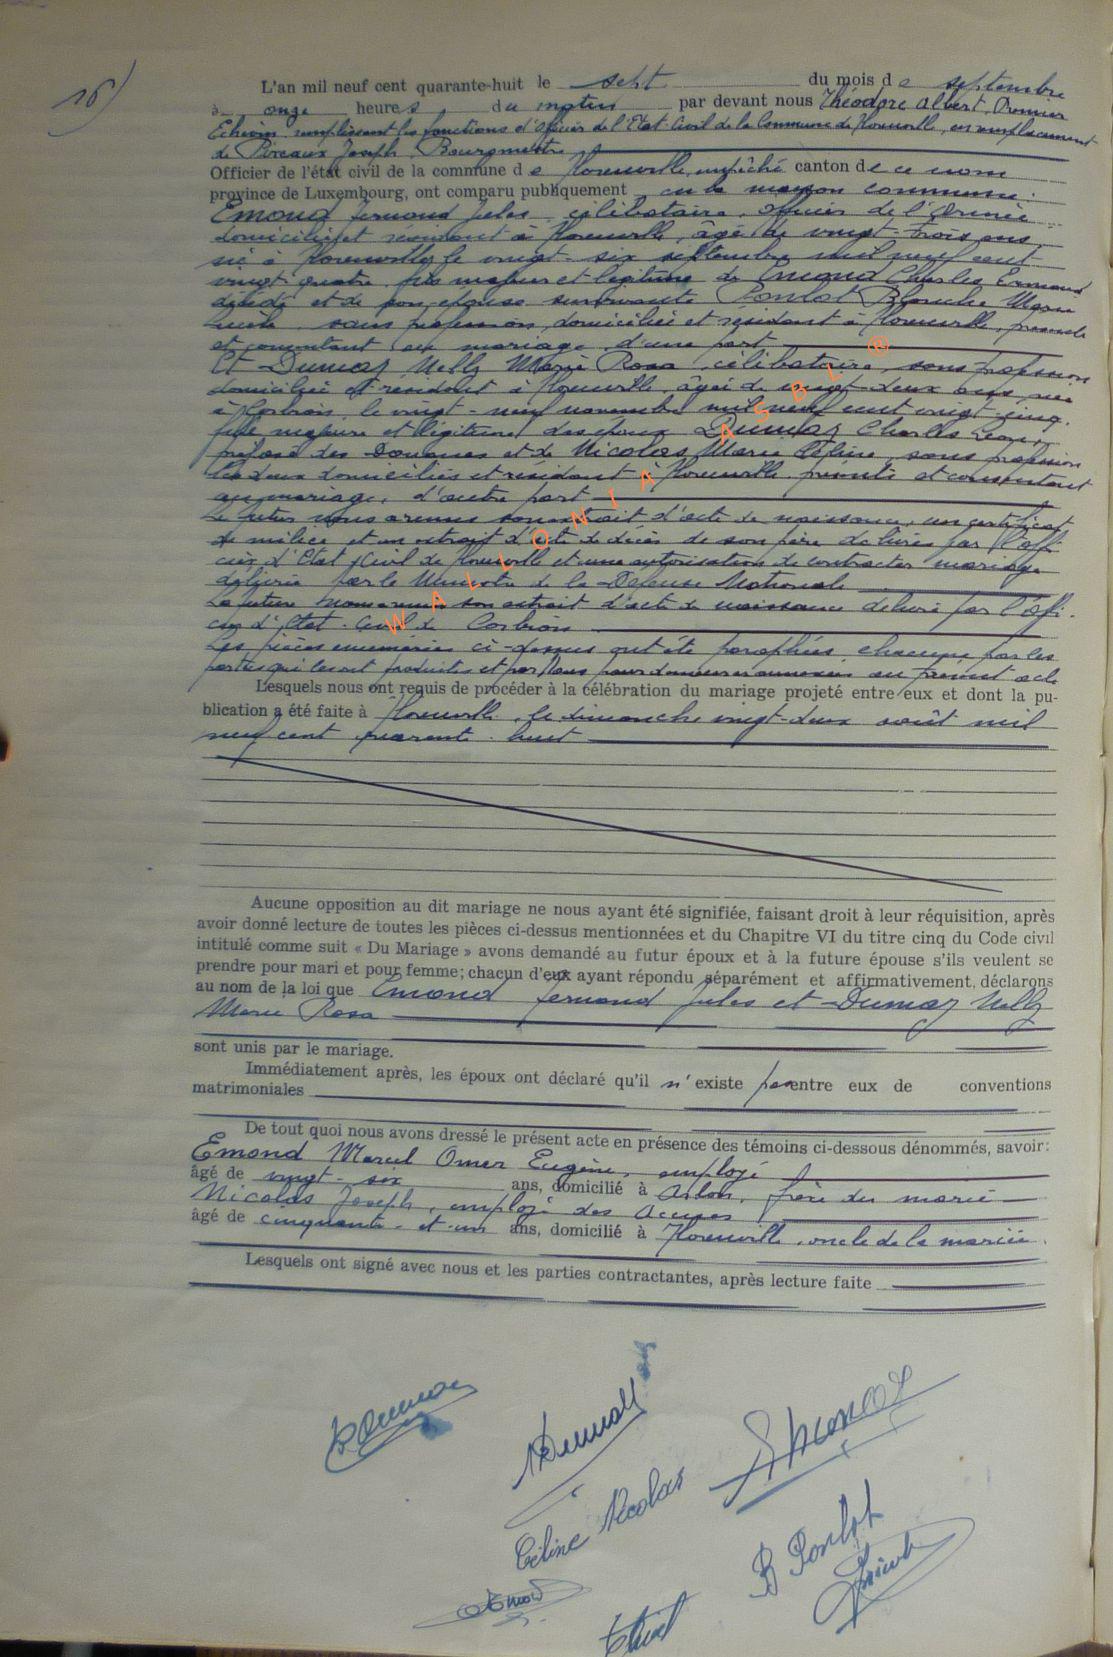 16)
L'an mil neuf cent quarante-huit le sept du mois de septembre
à onze heures du matin par devant nous Théodore Albert,
Echevin remplissant les fonctions d'Officier de l'Etat-Civil de la Commune de Florenville, en remplacement
de Joseph, Bourgmestre
Officier de l'état civil de la commune de Florenville, empêché canton de ce nom
province de Luxembourg, ont comparu publiquement en la maison commune:
Emond Fernand Jules, célibataire, officier de l'Armée
domicilié et résidant à Florenville, âgé de vingt-trois ans,
né à Florenville le vingt-six septembre mil neuf cent
vingt-quatre, fils majeur et légitime de Emond Charles
décédé et de son épouse survivante Ponlot Blanche Marie
Lucie, sans profession, domiciliée et résidant à Florenville, présente
et consentant au mariage, d'une part
Et Dumay Nelly Marie Rosa, célibataire, sans profession
domiciliée et résidant à Florenville, âgée de vingt-deux ans, née
à Corbion, le vingt-neuf novembre mil neuf cent vingt-cinq,
fille majeure et légitime des époux Dumay Charles Léon,
préposé des Douanes et de Nicolas Marie Céline, sans profession
les deux domiciliés et résidant à Florenville, présents et consentant
au mariage, d'autre part
Le futur nous a remis son extrait d'acte de naissance, un certificat
de milice et un extrait d'acte de décès de son père délivrés par l'offi
cier d'Etat Civil de Florenville et une autorisation de contracter mariage
délivrée par le Ministre de la Défense Nationale
La future nous a remis son extrait d'acte de naissance délivré par l'Offi-
cier d'Etat-Civil de Corbion
Les pièces énumérées ci-dessus ont été paraphées, chacune par les
parties qui les ont produites et par Nous pour demeurer annexées au présent acte
Lesquels nous ont requis de procéder à la célébration du mariage projeté entre eux et dont la pu-
blication a été faite à Florenville, le dimanche vingt-deux août mil
neuf cent quarante-huit
Aucune opposition au dit mariage ne nous ayant été signifiée, faisant droit à leur réquisition, après
avoir donné lecture de toutes les pièces ci-dessus mentionnées et du Chapitre VI du titre cinq du Code civil
intitulé comme suit « Du Mariage » avons demandé au futur époux et à la future épouse s'ils veulent se
prendre pour mari et pour femme; chacun d'eux ayant répondu séparément et affirmativement, déclarons
au nom de la loi que Emond Fernand Jules et Dumay Nelly
Marie Rosa
sont unis par le mariage.
Immédiatement après, les époux ont déclaré qu'il n'existe pas entre eux de conventions
matrimoniales
De tout quoi nous avons dressé le présent acte en présence des témoins ci-dessous dénommés, savoir:
Emond Marcel Omer Eugène, employé
âgé de vingt-six ans, domicilié à Arlon, frère du marié
Nicolas Joseph, employé des Accises
âgé de cinquante-et-un ans, domicilié à Florenville, oncle de la mariée.
Lesquels ont signé avec nous et les parties contractantes, après lecture faite
WALLONIA ASBL ®
NDumay
Céline Nicolas
B Ponlot